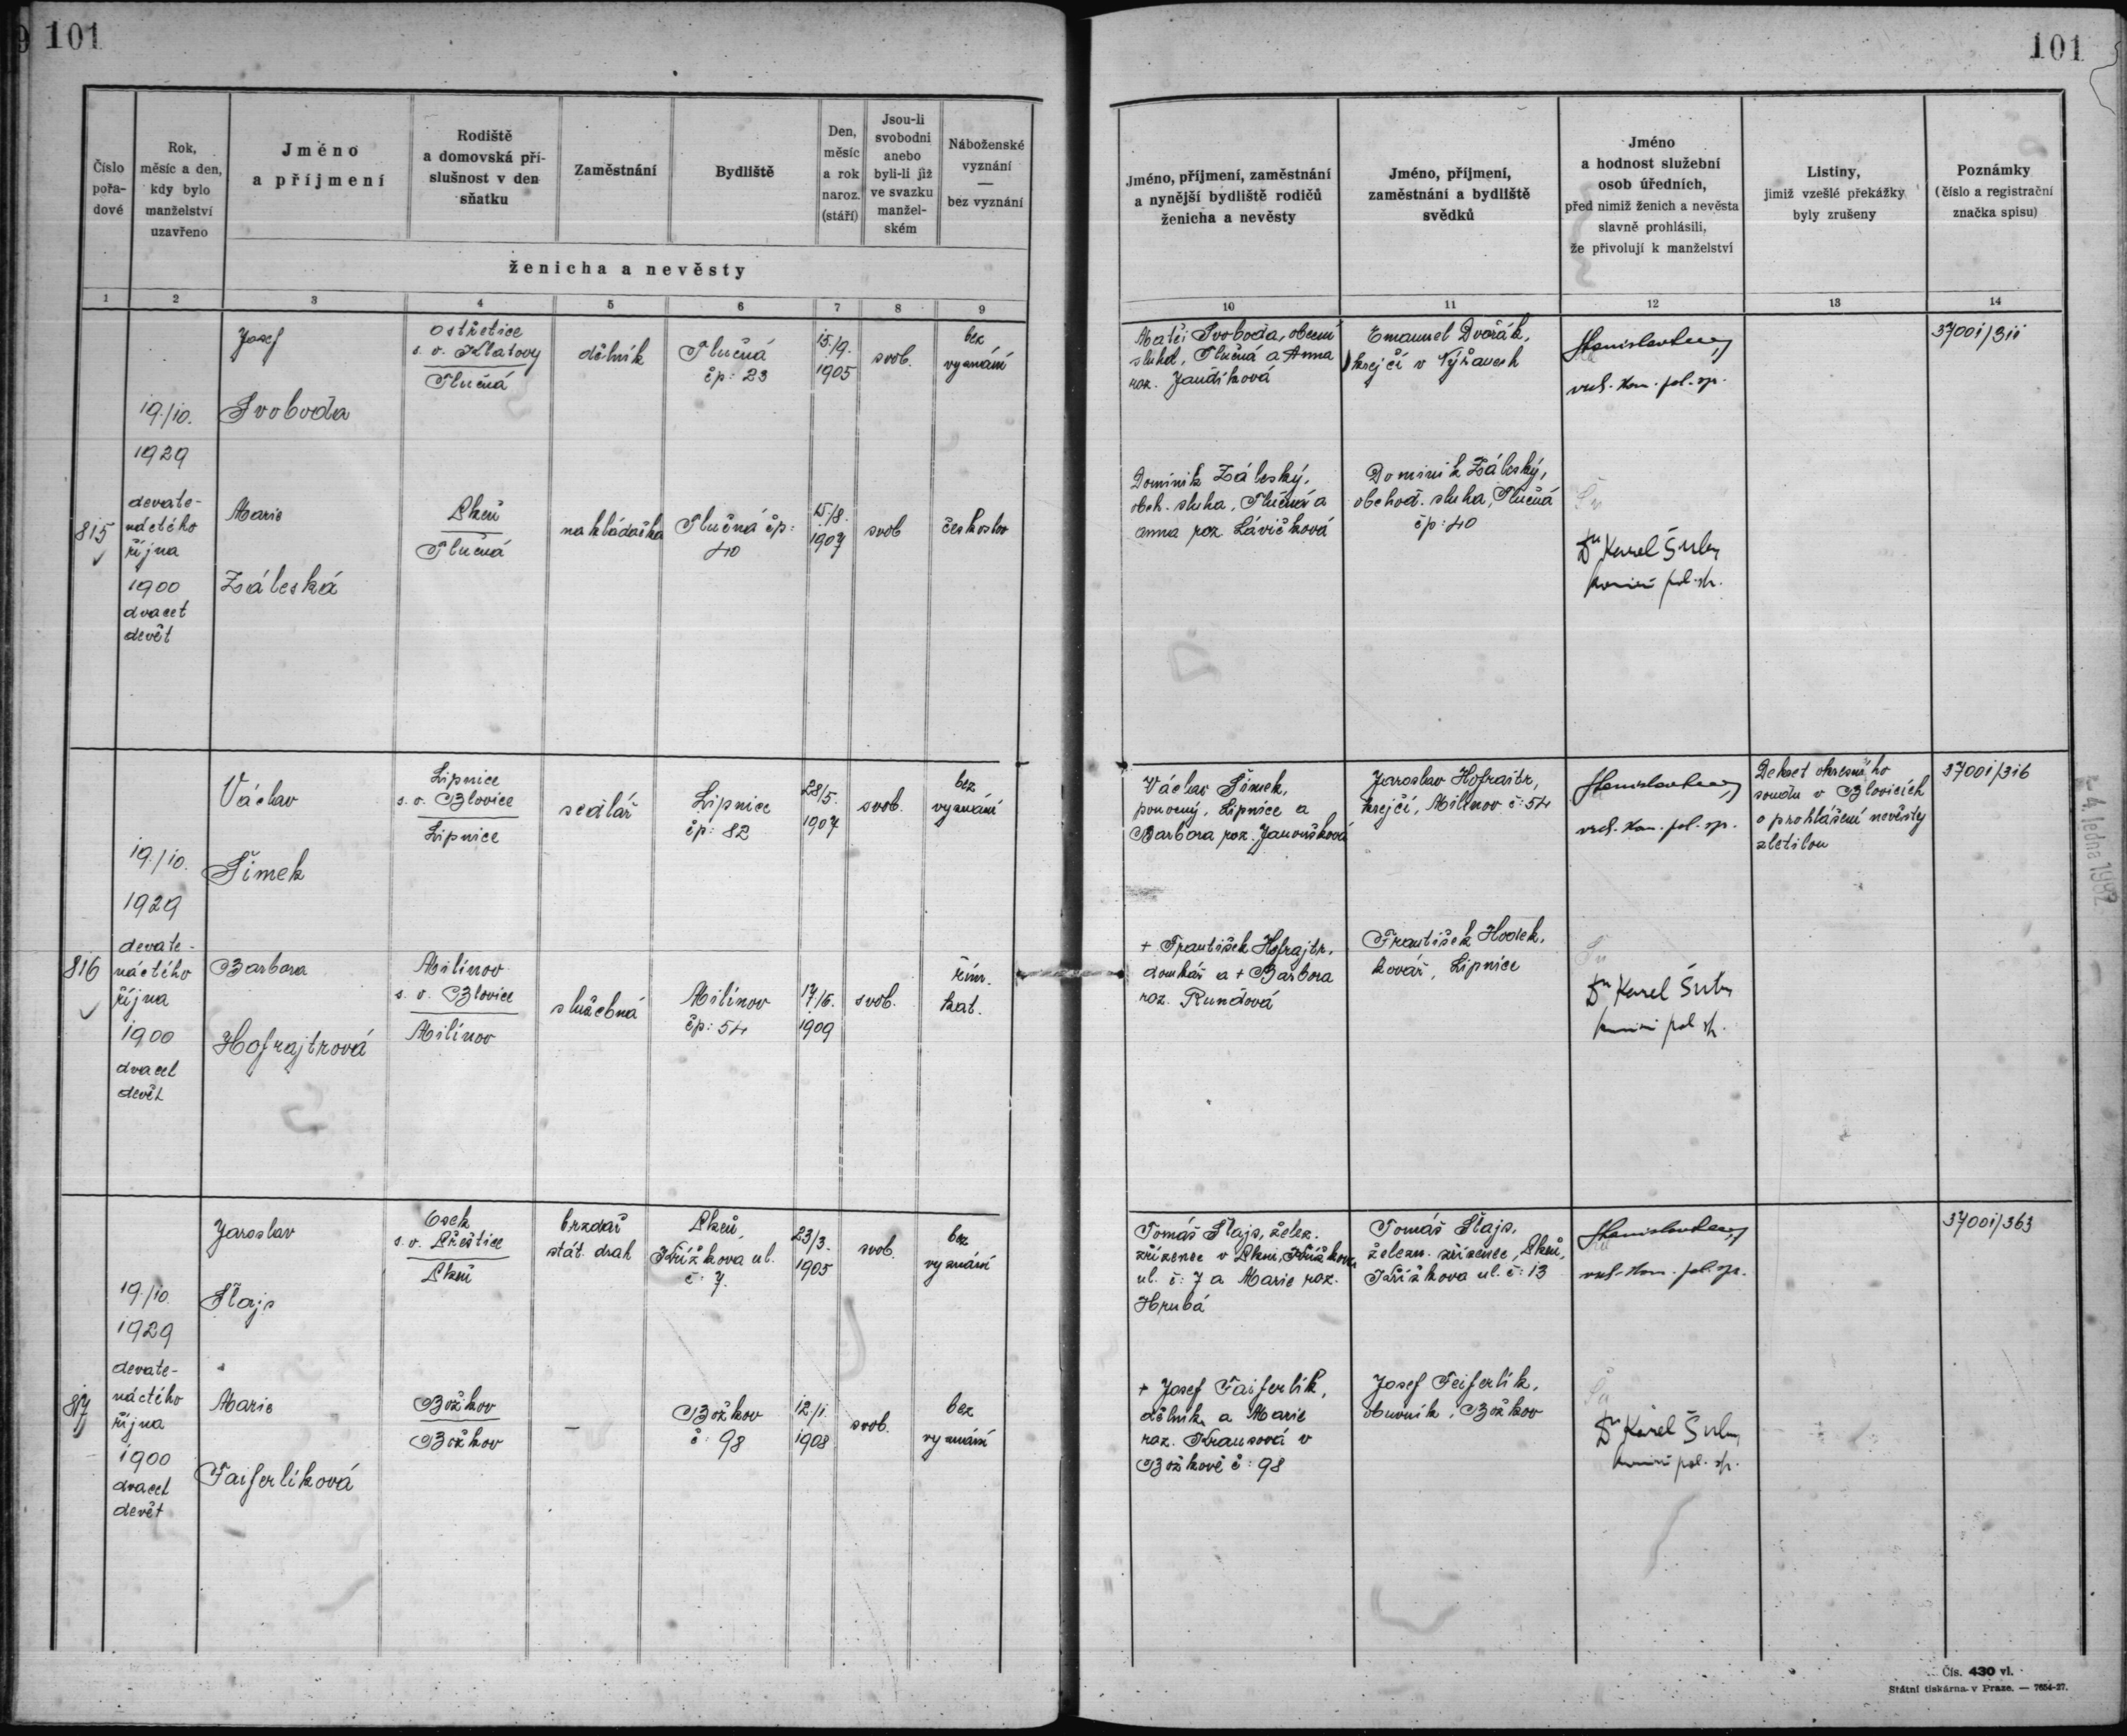 101
101
Číslo
pořa-
dové
Rok,
měsíc a den,
kdy bylo
manželství
uzavřeno
Jméno
a příjmení
Rodiště
a domovská pří-
slušnost v den
sňatku
Zaměstnání
Bydliště
Den,
měsíc
a rok
naroz.
(stáří)
Jsou-li
svobodni
anebo
byli-li již
ve svazku
manžel-
ském
Náboženské
vyznání
—
bez vyznání
ženicha a nevěsty
1 2 3 4 5 6 7 8 9
Jméno, příjmení, zaměstnání
a nynější bydliště rodičů
ženicha a nevěsty
Jméno, příjmení,
zaměstnání a bydliště
svědků
Jméno
a hodnost služební
osob úředních,
před nimiž ženich a nevěsta
slavně prohlásili,
že přivolují k manželství
Listiny,
jimiž vzešlé překážky
byly zrušeny
Poznámky
(číslo a registrační
značka spisu)
10 11 12 13 14
815
19./10.
1929
devate-
náctého
října
1900
dvacet
devět
Josef
Svoboda
Ostřetice
s. o. Klatovy
Tlučná
dělník
Tlučná
čp: 23
15./9.
1905
svob.
bez
vyznání
Matěj Svoboda, obecní
sluha, Tlučná a Anna
roz. Jandíková
Emanuel Dvořák,
krejčí v Nýřanech
vrch. kom. pol. sp.
37001/311
Marie
Záleská
Plzeň
Tlučná
nakládačka
Tlučná čp:
40
15./8.
1907
svob
českoslov
Dominik Záleský,
obch. sluha, Tlučná a
Anna roz Lávičková
Dominik Záleský,
obchod. sluha, Tlučná
čp: 40
Dr Karel
pol. sp.
816
19./10.
1929
devate-
náctého
října
1900
dvacet
devět
Václav
Šimek
Lipnice
s. o. Blovice
Lipnice
sedlář
Lipnice
čp: 82
28/5.
1907
svob.
bez
vyznání
Václav Šimek,
Lipnice a
Barbora roz. Janoušková
Jaroslav Hofrajtr,
krejčí, Milínov č: 54
vrch. kom. pol. sp.
Dekret okresního
soudu v Blovicích
o prohlášení nevěsty
zletilou
37001/316
Barbora
Hofrajtrová
Milínov
s. o. Blovice
Milínov
služebná
Milínov
čp: 54
17/6.
1909
svob.
řím.
kat.
+ František Hofrajtr,
domkář a + Barbora
roz. Rundová
František Hodek,
kovář, Lipnice
Dr Karel
pol. sp.
817
19./10.
1929
devate-
náctého
října
1900
dvacet
devět
Jaroslav
Štajs
Osek
s. o. Přeštice
Plzeň
brzdař
stát. drah
Plzeň,
Křížkova ul.
č: 7.
23/3.
1905
svob.
bez
vyznání
Tomáš Štajs, želez.
zřízenec v Plzni, Křížkova
ul. č: 7 a Marie roz.
Hrubá
Tomáš Štajs,
železn. zřízenec, Plzeň,
Křížkova ul. č: 13
vrch. kom. pol. sp.
37001/363
Marie
Faiferlíková
Božkov
Božkov
—
Božkov
č: 98
12/1.
1908
svob.
bez
vyznání
+ Josef Faiferlík,
dělník a Marie
roz. Krausová v
Božkově č: 98
Josef Feiferlík,
obuvník, Božkov
Dr Karel
pol. sp.
Čís. 430 vl.
Státní tiskárna v Praze. — 7654-27.